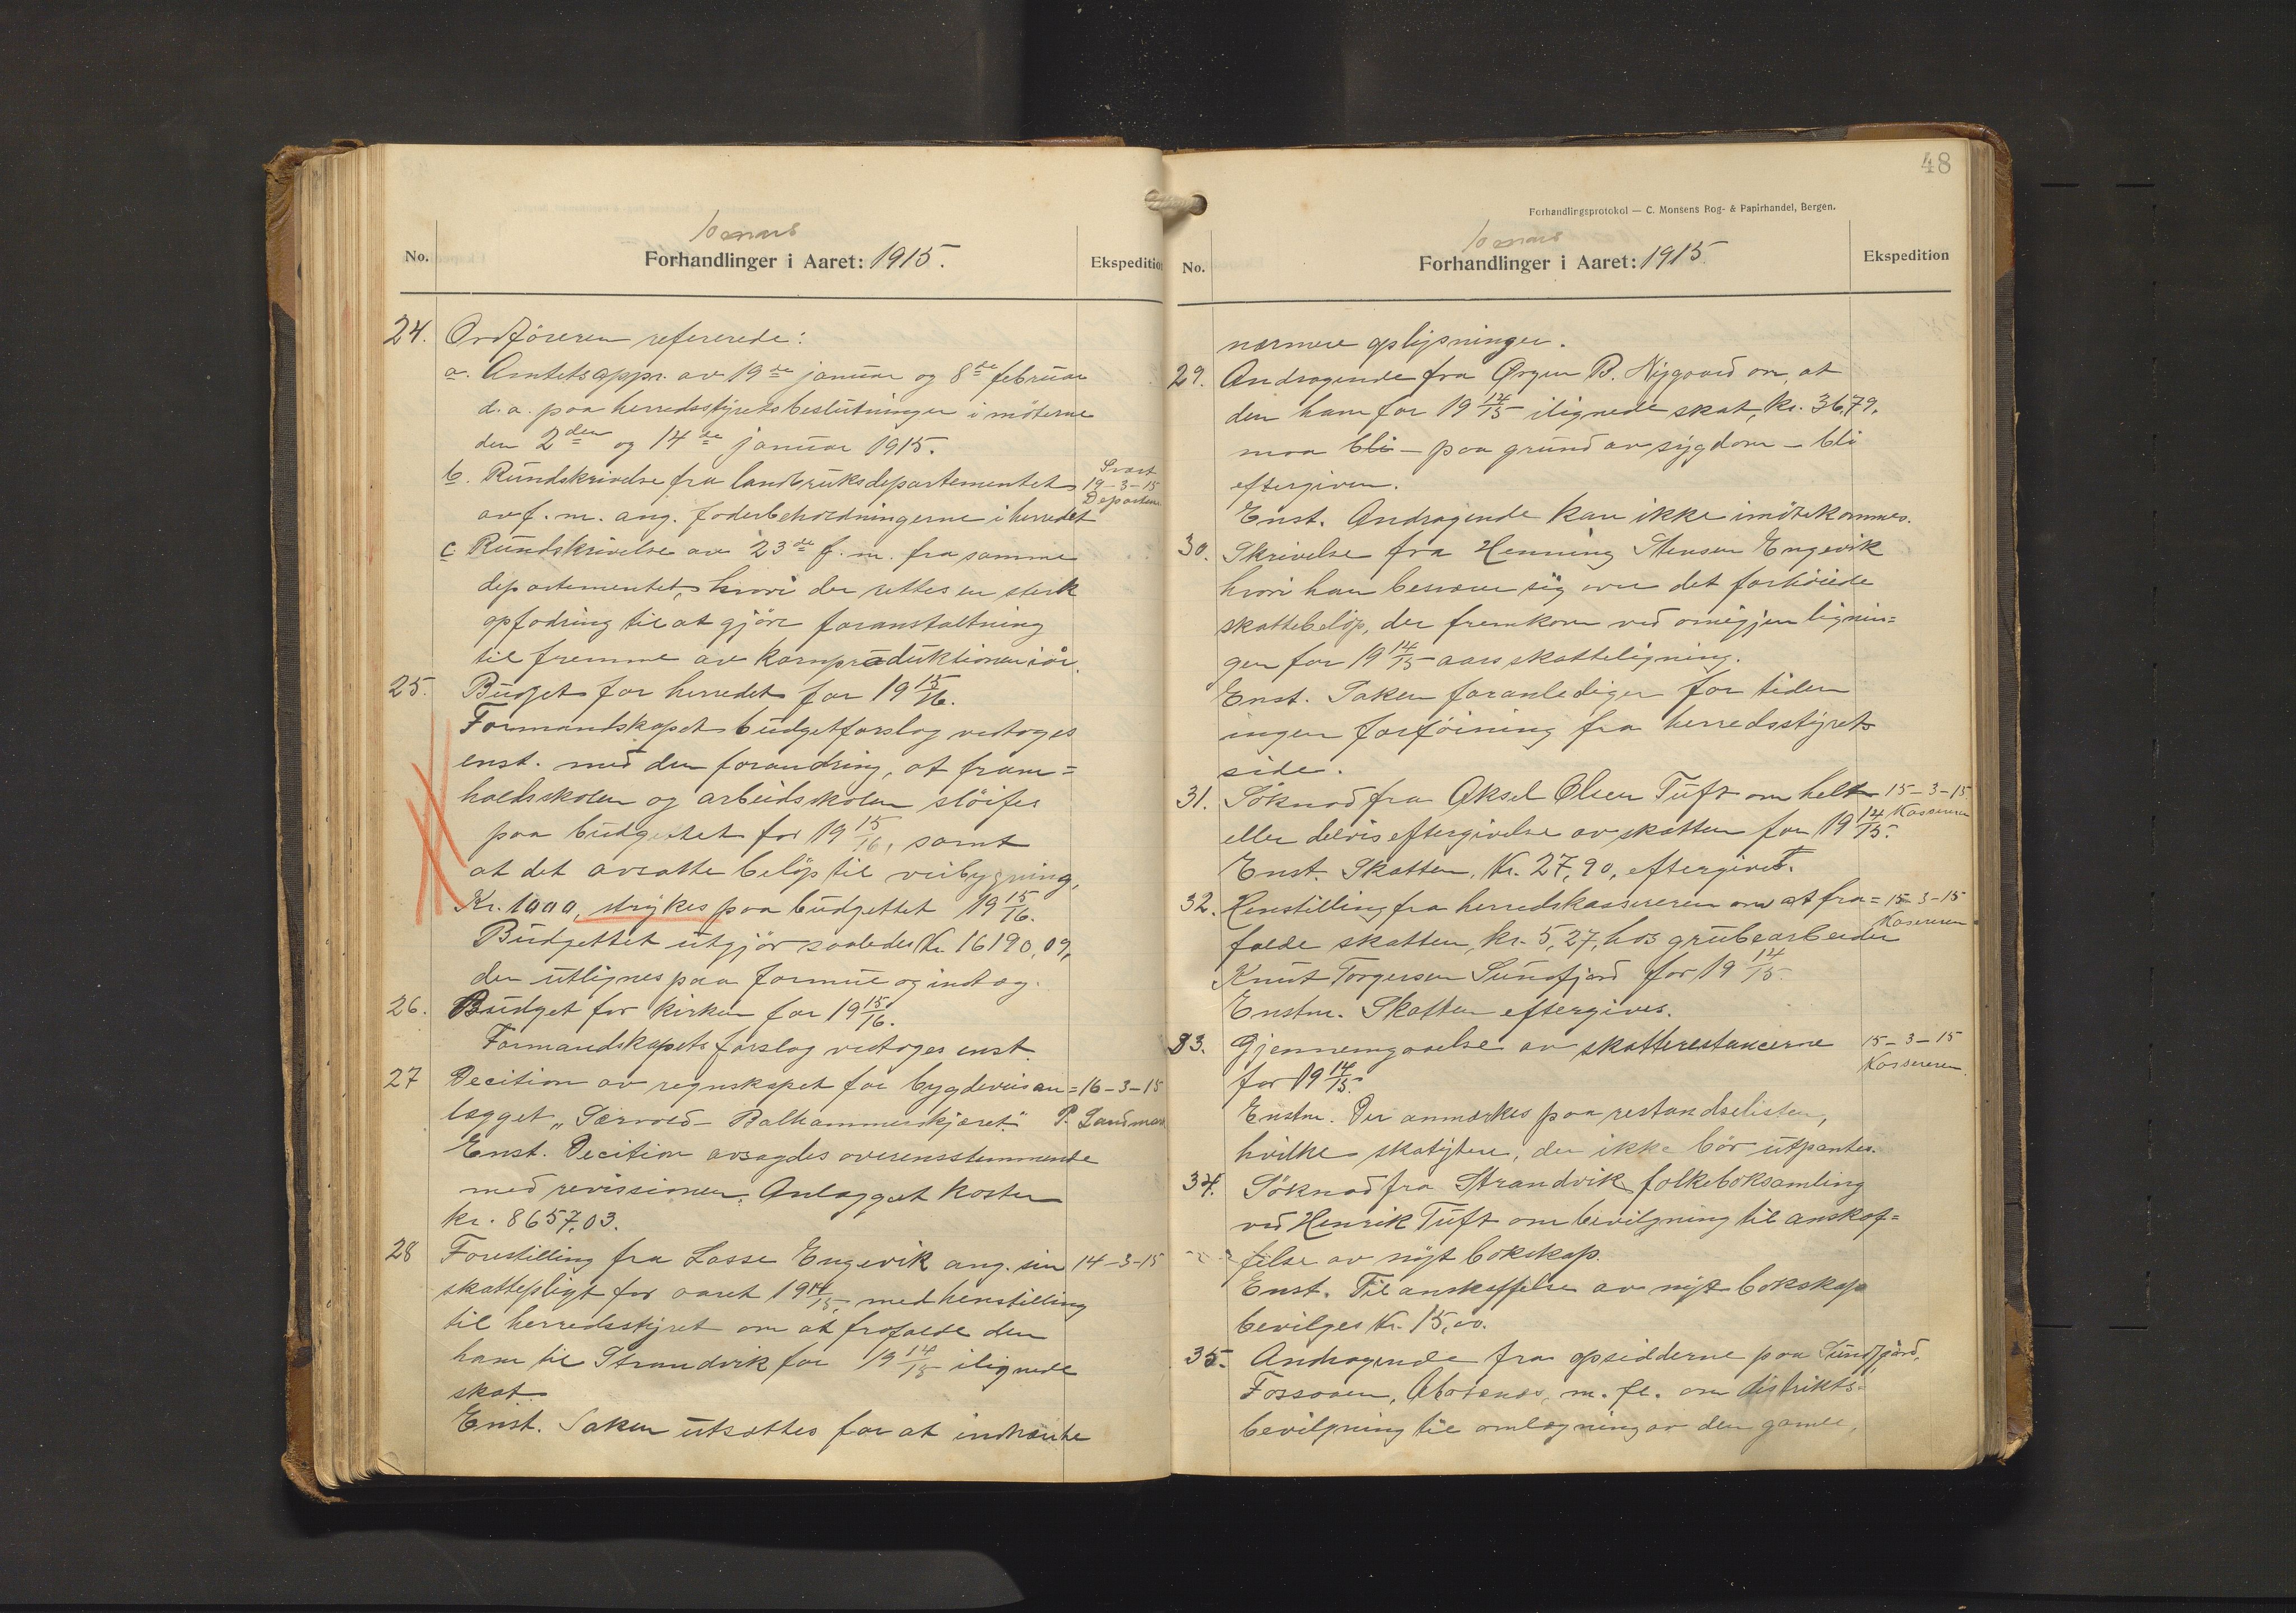 10 mars
No.
Forhandlinger i Aaret: 1915.
Ekspedition
24. Ordföreren refererede:
a. Amtets appr. av 19de januar og 8de februar
d.a. paa herredsstyrets beslutninger i möterne
den 2den og 14de januar 1915.
b. Rundskrivelse fra landbruksdepartementet
Svart
19-3-15
Departem.
av f. m. ang. foderbeholdningerne i herredet
c. Rundskrivelse av 23de f. m. fra samme
departementet, hvori der rettes en sterk
opfodring til at gjöre foranstaltning
til fremme av kornproduktionen i år.
25. Budget for herredet for 19 15/16.
Formandskapets budgetforslag vedtoges
enst. med den forandring, at fram=
haldsskolen og arbeidsskolen slöifes
paa budgettet for 19 15/16, samt
at det avsatte belöp til veibygning,
Kr. 1000, strykes paa budgettet 19 15/16.
Budgettet utgjör saaledes Kr. 16190,09,
der utlignes paa formue og indtæg.
26. Budget for kirken for 19 15/16.
Formandskapets forslag vedtoges enst.
27 Decition av regnskapet for bygdeveisan= 16-3-15
lægget „Særvold - Balhammerskjæret". P. Landmark
Enst. Decition avsagdes overensstemmende
med revissionen. Anlægget koster
kr. 8657,03.
28 Forestilling fra Lasse Engevik ang. sin 14-3-15
skattepligt for aaret 19 14/15, med henstilling
til herredsstyret om at frafalde den
ham til Strandvik for 19 14/15 ilignede
skat.
Enst. Saken utsættes for at indhente
48
Forhandlingsprotokol — C. Monsens Bog- & Papirhandel, Bergen.
10 mars
No.
Forhandlinger i Aaret: 1915
Ekspedition
nærmere oplysninger.
29. Andragende fra Örgen B. Nygaard om, at
den ham for 19 14/15 ilignede skat, kr. 36,79.
maa bli - paa grund av sygdom - bli
eftergiven.
Enst. Andragende kan ikke imötekommes.
30. Skrivelse fra Henning Stensen Engevik
hvori han besværer sig over det forhöiede
skattebelöp, der fremkom ved omigjen lignin=
gen for 19 14/15 aars skatteligning.
Enst. Saken foranlediger for tiden
ingen forföining fra herredsstyrets
side.
31. Söknad fra Aksel Olsen Tuft om helt 15-3-15
Kasseren
eller delvis eftergivelse av skatten for 19 14/15.
Enst. Skatten, Kr. 27,90, eftergivet.
32. Henstilling fra herredskassereren om at fra= 15-3-15
Kassereren
falde skatten, kr. 5,27, hos grubearbeider
Knut Torgersen Sundfjord for 19 14/15
Enstm. Skatten eftergives.
33. Gjennemgaaelse av skatterestancerne 15-3-15
Kassereren.
for 19 14/15.
Enstm. Der anmerkes paa restandselisten,
hvilke skatytere, der ikke bör utpantes.
34. Söknad fra Strandvik folkeboksamling
ved Henrik Tuft om bevilgning til anskaf=
felse av nyt bokskap.
Enst. Til anskaffelse av nyt bokskap
bevilges Kr. 15,00.
35. Andragende fra opsidderne paa Sundfjord,
Fossaaen, m. fl. om distrikts=
bevilgning til omlægning av den gamle,